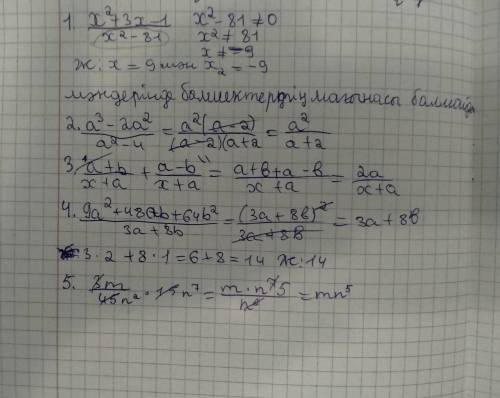 1. (x²+3x-1)/(x²-81) x²-81≠0
x²≠81
x≠-9
Ж: x=9 мән x₂=-9
мәндерінде бөлшектердің мағынасы болмайды
2. (a³-2a²)/(a²-4) = (a²(a-2))/((a-2)(a+2) = a²/(a+2)
3. (a+b)/(x+a) + (a-b)/(x+a) = (a+b+a-b)/(x+a) = 2a/(x+a)
4. (9a²+48ab+64b²)/(3a+8b) = (3a+8b)²/(3a+8b) = 3a+8b
3·2+8·1=6+8=14 Ж:14
5. 3m/(45n²) · 15n⁷ = (m·n⁷5)/n² = mn⁵